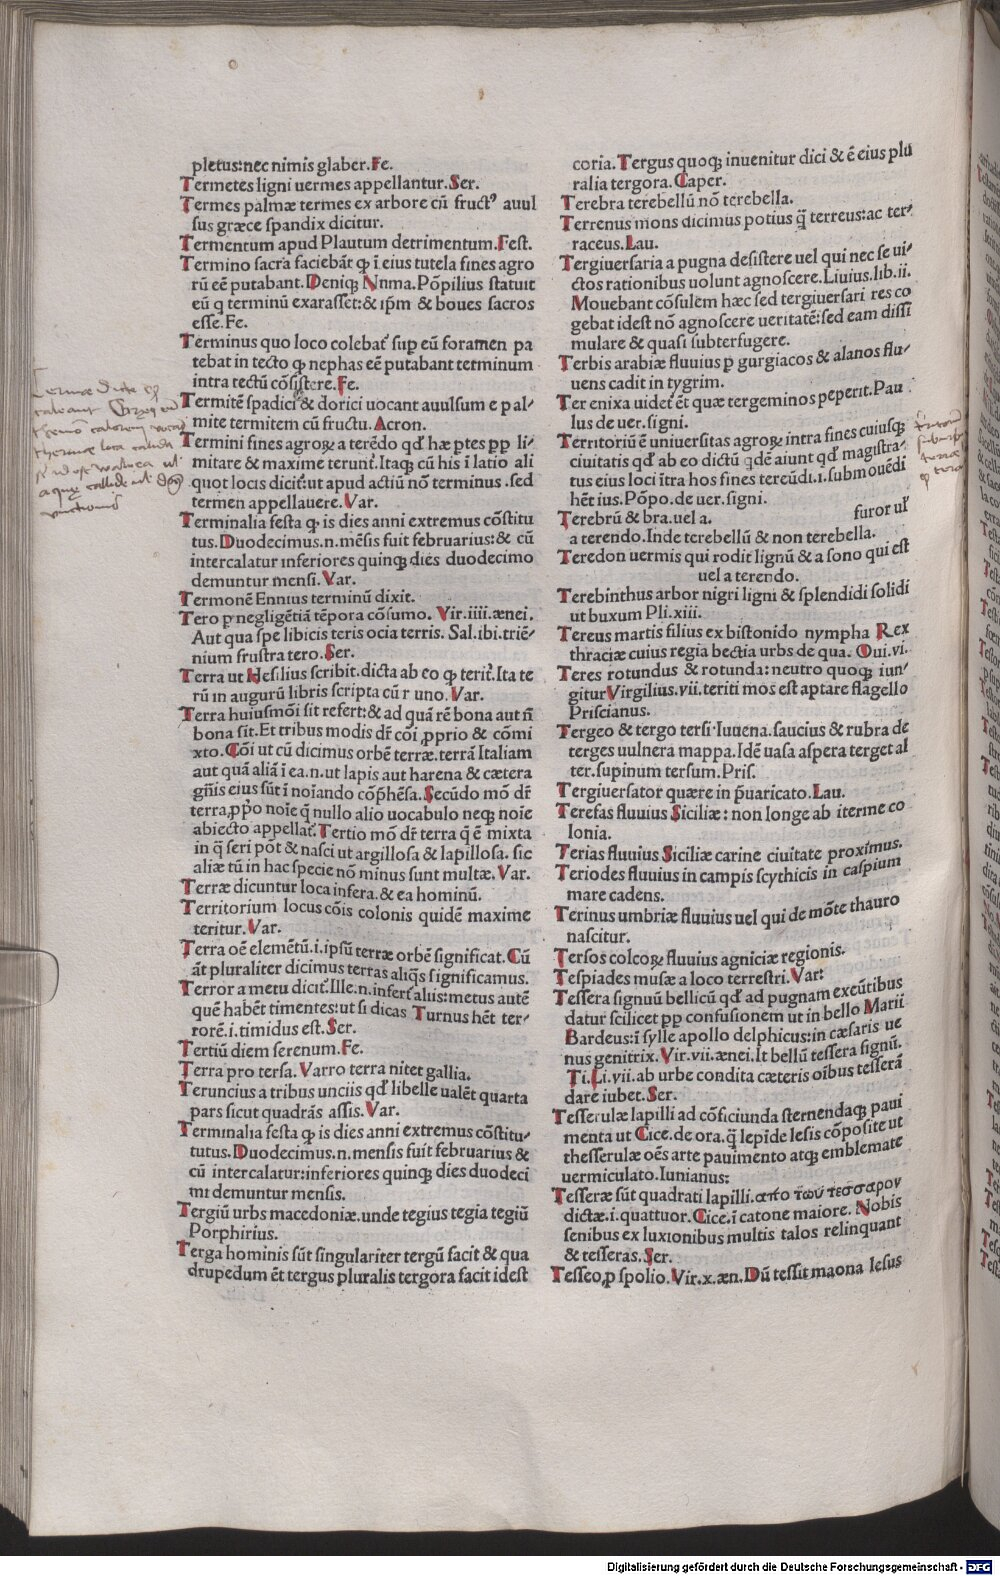 pletus:nec nimis glaber.Fe.
Termetes ligni uermes appellantur.Ser.
Termes palmæ termes ex arbore cū fructꝰ auul
sus græce spandix dicitur.
Termentum apud Plautum detrimentum.Fest.
Termino sacra faciebāt ꝙ ī eius tutela fines agro
rū eē putabant.Deniqꝫ Nnma.Pōpilius statuit
eū q terminū exarasset:& ipm̄ & boues sacros
esse.Fe.
Terminus quo loco colebat᷒ sup eū foramen pa
tebat in tecto ꝙ nephas eē putabant terminum
intra tectū cōsistere.Fe.
Termitē spadici & dorici uocant auulsum e pal⸗
mite termitem cū fructu.Acron.
Termini fines agroꝝ a terēdo qd᷒ hæ ptes pp li⸗
mitare & maxime terunt᷒.Itaqꝫ cū his ī latio ali
quot locis dicit᷒:ut apud actiū nō terminus .sed
termen appellauere.Var.
Terminalia festa ꝙ is dies anni extremus cōstitu
tus.Duodecimus.n.mēsis fuit februarius:& cū
intercalatur inferiores quinqꝫ dies duodecimo
demuntur mensi.Var.
Termonē Ennius terminū dixit.
Tero p negligētiā tēpora cōsumo. Vir.iiii.ænei.
Aut qua spe libicis teris ocia terris. Sal.ibi.triē⸗
nium frustra tero.Ser.
Terra ut Hesilius scribit.dicta ab eo ꝙ terit᷒.Ita te
rū in augurū libris scripta cū r uno.Var.
Terra huiusmōi sit refert:& ad quā rē bona aut n̄
bona sit.Et tribus modis dr̄ cōi ꝓprio & cōmi
xto.Cōi ut cū dicimus orbē terræ.terrā Italiam
aut quā aliā ī ea.n.ut lapis aut harena & cætera
gn̄is eius sūt ī noiando cōp̄hēsa.Secūdo mō dr̄
terra,ꝓp̄o noie q̄ nullo alio uocabulo neqꝫ noie
abiecto appellat᷒.Tertio mō dr̄ terra q̄ ē mixta
in q̄ seri pōt & nasci ut argillosa & lapillosa. sic
aliæ tū in hac specie nō minus sunt multæ.Var.
Terræ dicuntur loca infera.& ea hominū.
Territorium locus cōis colonis quidē maxime
teritur.Var.
Terra oē elemētū.i.ipsū terræ orbē significat.Cū
āt pluraliter dicimus terras aliq̄s significamus.
Terror a metu dicit᷒.Ille.n.infert᷒ alius:metus autē
quē habēt timentes:ut si dicas Turnus hēt ter⸗
rorē.i.timidus est.Ser.
Tertiū diem serenum.Fe.
Terra pro tersa.Varro terra nitet gallia.
Teruncius a tribus unciis qd᷒ libelle ualēt quarta
pars sicut quadrās assis.Var.
Terminalia festa ꝙ is dies anni extremus cōstitu⸗
tutus.Duodecimus.n.mensis fuit februarius &
cū intercalatur:inferiores quinqꝫ dies duodeci
mi demuntur mensis.
Tergiū urbs macedoniæ.unde tegius tegia tegiū
Porphirius.
Terga hominis sūt singulariter tergū facit & qua
drupedum ēt tergus pluralis tergora facit idest
coria.Tergus quoqꝫ inuenitur dici & ē eius plu
ralia tergora. Caper.
Terebra terebellū nō terebella.
Terrenus mons dicimus potius q̄ terreus:ac ter⸗
raceus.Lau.
Tergiuersaria a pugna desistere uel qui nec se ui⸗
ctos rationibus uolunt agnoscere.Liuius.lib.ii.
Mouebant cōsulem hæc sed tergiuersari res co
gebat idest nō agnoscere ueritatē:sed eam dissi
mulare & quasi subterfugere.
Terbis arabiæ fluuius p gurgiacos & alanos flu⸗
uens cadit in tygrim.
Ter enixa uidet᷒ ēt quæ tergeminos peperit.Pau
lus de uer.signi.
Territoriū ē uniuersitas agroꝝ intra fines cuiusqꝫ
ciuitatis qd᷒ ab eo dictū qdē aiunt qd᷒ magistra⸗
tus eius loci ītra hos fines tercūdi.i.submouēdi
hēt ius.Pōpo.de uer.signi.
Terebrū & bra.uel a. furor ul᷒
a terendo.Inde terebellū & non terebella.
Teredon uermis qui rodit lignū & a sono qui est
uel a terendo.
Terebinthus arbor nigri ligni & splendidi solidi
ut buxum Pli.xiii.
Tereus martis filius ex bistonido nympha Rex
thraciæ cuius regia bectia urbs de qua. Oui.vi.
Teres rotundus & rotunda:neutro quoqꝫ iun⸗
gitur Virgilius.vii.teriti mos est aptare flagello
Priscianus.
Tergeo & tergo tersi.Iuuena.saucius & rubra de
terges uulnera mappa.Idē uasa aspera terget al
ter.supinum tersum.Pris.
Tergiuersator quære in p̄uaricato.Lau.
Teresas fluuius Siciliæ: non longe ab iterme co
lonia.
Terias fluuius Siciliæ carine ciuitate proximus.
Teriodes fluuius in campis scythicis in caspium
mare cadens.
Terinus umbriæ fluuius uel qui de mōte thauro
nascitur.
Tersos colcoꝝ fluuius agniciæ regionis.
Tespiades musæ a loco terrestri.Var:
Tessera signuū bellicū qd᷒ ad pugnam exeūtibus
datur scilicet pp confusionem ut in bello Marii
Bardeus:ī sylle apollo delphicus:in cæsaris ue
nus genitrix.Vir.vii.ænei.It bellū tessera signū.
Ti.Li.vii.ab urbe condita cæteris oībus tesserā
dare iubet.Ser.
Tesserulæ lapilli ad cōficiunda sternendaqꝫ paui
menta ut Cice.de ora.q̄ lepide lesis cōposite ut
thesserulæ oēs arte pauimento atqꝫ emblemate
uermiculato.Iunianus:
Tesseræ sūt quadrati lapilli.απο των τεσσαρον
dictæ.i.quattuor.Cice.ī catone maiore. Nobis
senibus ex luxionibus multis talos relinquant
& tesseras.Ser.
Tesseo,ꝓ spolio.Vir.x.æn.Dū tessit maona Iesus
Digitalisierung gefördert durch die Deutsche Forschungsgemeinschaft - DFG